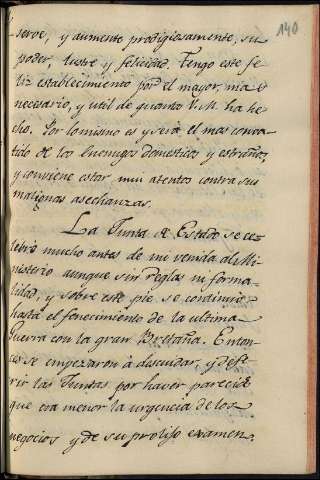 140
serve, y aumente prodigiosamente, su
poder, lustre y felicidad. Tengo este fe-
liz establecimiento por el mayor, mas
necesario, y util de quanto V. M. ha he-
cho. Por lo mismo es y será el mas comba-
tido de los Enemigos domesticos y estraños,
y conviene estar mui atentos contra sus
malignas asechanzas.
La Junta de Estado se ce-
lebró mucho antes de mi venida al Mi-
nisterio aunque sin Reglas ni forma-
lidad, y sobre este pie se continuó
hasta el fenecimiento de la ultima
Guerra con la gran Bretaña. Enton-
ces se empezaron à descuidar, y dife-
rir las Juntas por haver parecido
que era menor la urgencia de los
negocios y de su prolijo examen.